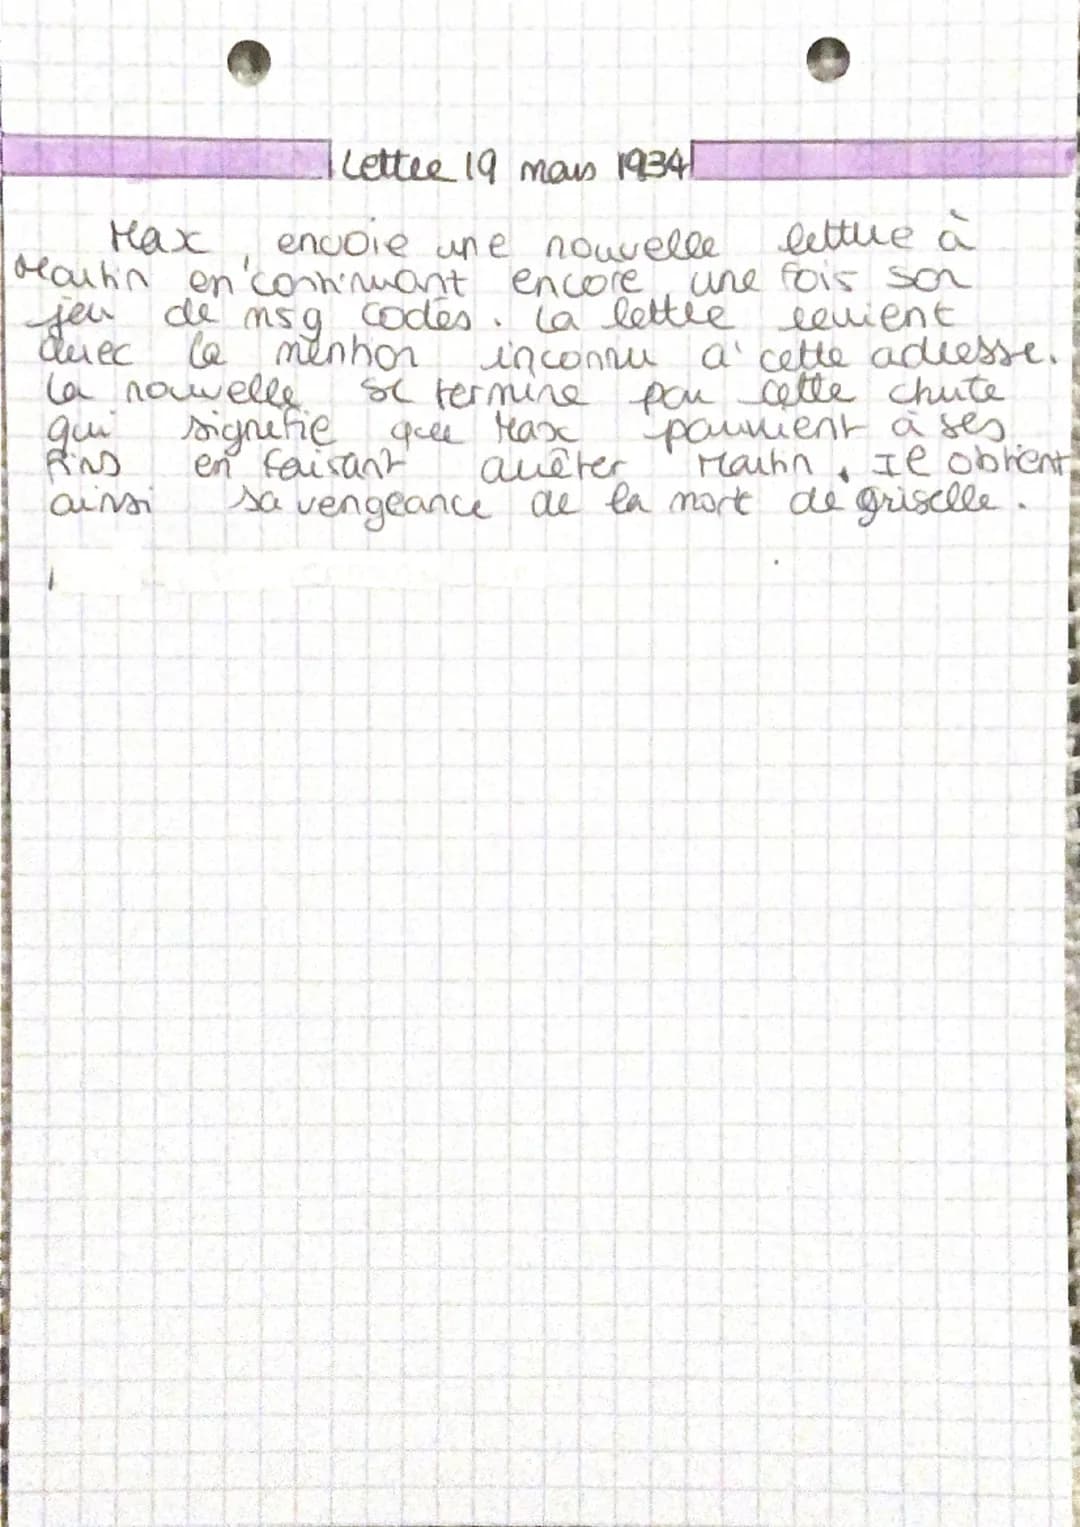 Lettre 19 mars 1934
Max, envoie une nouvelle lettre à
Martin en continuant encore une fois son
jeu de msg codés. La lettre revient
avec la mention inconnu à cette adresse.
La nouvelle se termine par cette chute
qui signifie que Max parvient à ses
fins en faisant arrêter Martin. Il obtient
ainsi sa vengeance de la mort de griselle.